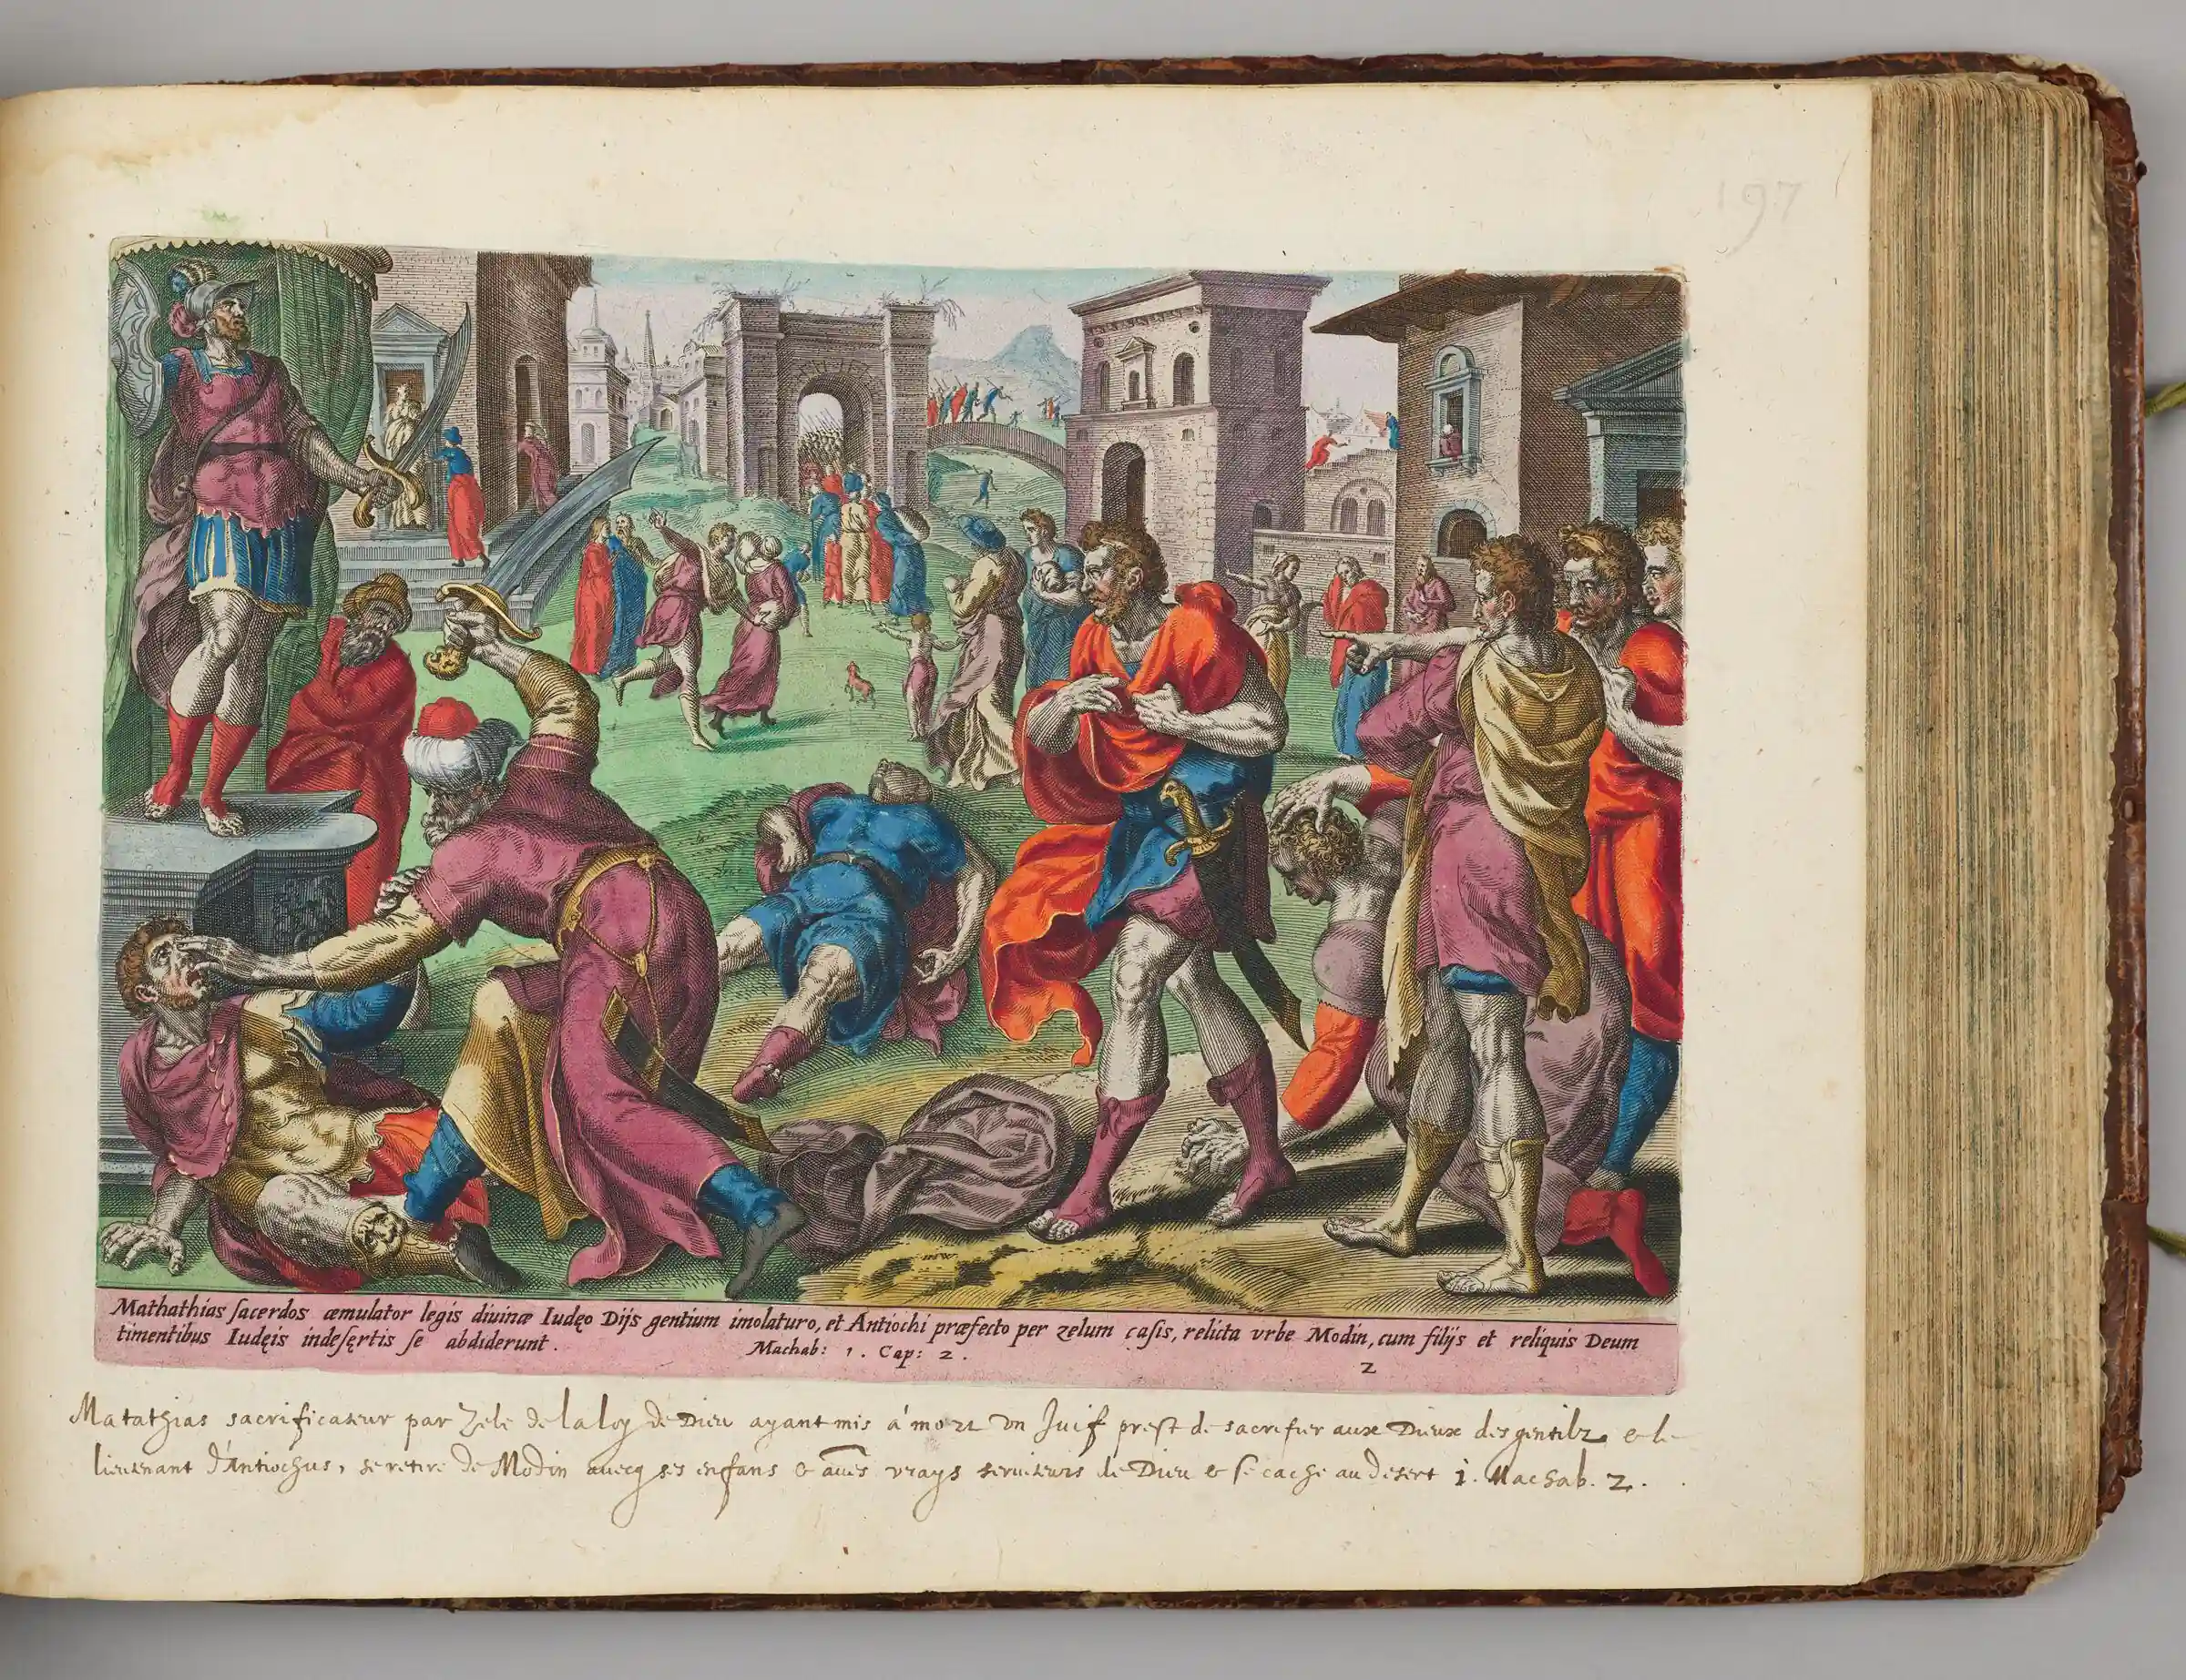 197
Mathathias sacerdos æmulator legis divinæ Iudęo Dijs gentium imolaturo, et Antiochi præfecto per zelum cæsis, relicta vrbe Modin, cum filijs et reliquis Deum
timentibus Iudęis indesęrtis se abdiderunt.
Machab: 1. Cap: 2.
2
Matathias sacrificateur par Zele de la loy de Dieu ayant mis à mort vn Juif prest de sacrifier aux Dieux des gentilz & le
lieutenant d'Antiochus, se retire de Modin avecq ses enfans & aues vrays seruiteurs de Dieu & se cache au desert 1. Machab. 2.